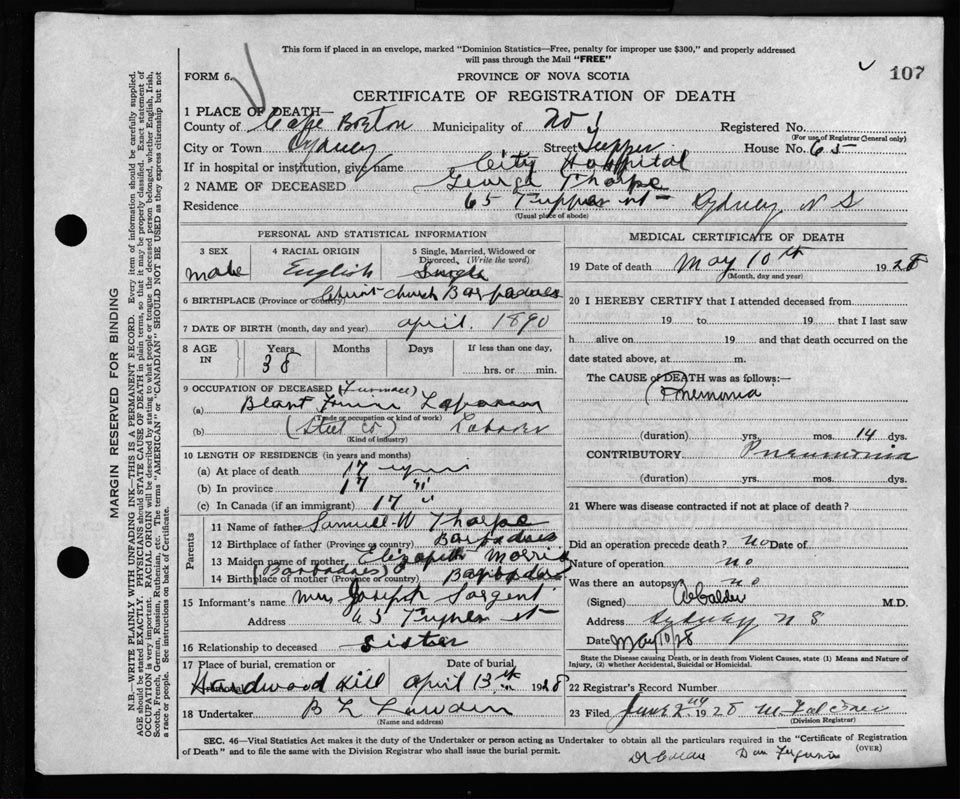 This form if placed in an envelope, marked "Dominion Statistics—Free, penalty for improper use $300," and properly addressed
will pass through the Mail "FREE"
107
FORM 6.
PROVINCE OF NOVA SCOTIA
CERTIFICATE OF REGISTRATION OF DEATH
MARGIN RESERVED FOR BINDING
N.B.—WRITE PLAINLY WITH UNFADING INK—THIS IS A PERMANENT RECORD. Every item of information should be carefully supplied.
AGE should be stated EXACTLY. PHYSICIANS should STATE CAUSE OF DEATH in plain terms, so that it may be properly classified. Exact statement of
OCCUPATION is very important. RACIAL ORIGIN will be described by stating to what people or tongue the deceased person belonged, whether English, Irish,
Scotch, French, German, Russian, Ruthenian, etc. The terms "AMERICAN" or "CANADIAN" SHOULD NOT BE USED as they express citizenship but not
a race or people. See instructions on back of Certificate.
1 PLACE OF DEATH—
County of Cape Breton Municipality of No 1 Registered No.
(For use of Registrar General only)
City or Town Sydney Street Tupper House No. 65
If in hospital or institution, give name City Hospital
2 NAME OF DECEASED George Tharpe
Residence 65 Tupper st Sydney N S
(Usual place of abode)
PERSONAL AND STATISTICAL INFORMATION
3 SEX male
4 RACIAL ORIGIN English
5 Single, Married, Widowed or Divorced, (Write the word) Single
6 BIRTHPLACE (Province or country) Christ Church Barbadoes
7 DATE OF BIRTH (month, day and year) april. 1890
8 AGE IN Years 38 Months Days If less than one day, hrs. or min.
9 OCCUPATION OF DECEASED (Furnace)
(a) Blast
(Trade or occupation or kind of work)
(b) (Steel Co.) Laborer
(Kind of industry)
10 LENGTH OF RESIDENCE (in years and months)
(a) At place of death 17 years
(b) In province 17 "
(c) In Canada (if an immigrant) 17 "
Parents
11 Name of father Samuel W Tharpe
12 Birthplace of father (Province or country) Barbadoes
13 Maiden name of mother Elizabeth Morris
(Barbadoes)
14 Birthplace of mother (Province or country) Barbadoes
15 Informant's name Mrs Joseph Sargent
65 Tupper st
16 Relationship to deceased Sister
17 Place of burial, cremation or removal Hardwood Hill Date of burial april 13th 1928
18 Undertaker B L
(Name and address)
MEDICAL CERTIFICATE OF DEATH
19 Date of death May 10th 1928
(Month, day and year)
20 I HEREBY CERTIFY that I attended deceased from
19 to 19 that I last saw
h alive on 19 and that death occurred on the
date stated above, at m.
The CAUSE OF DEATH was as follows:—
(Pnemonia
(duration) yrs. mos. 14 dys.
CONTRIBUTORY Pneumonia
(duration) yrs. mos. dys.
21 Where was disease contracted if not at place of death?
Did an operation precede death? no Date of
Nature of operation no
Was there an autopsy? no
(Signed) M.D.
Address Sydney N S
Date May 10/28
State the Disease causing Death, or in death from Violent Causes, state (1) Means and Nature of
Injury, (2) whether Accidental, Suicidal or Homicidal.
22 Registrar's Record Number
23 Filed June 2nd 1928
(Division Registrar)
SEC. 46—Vital Statistics Act makes it the duty of the Undertaker or person acting as Undertaker to obtain all the particulars required in the "Certificate of Registration
of Death" and to file the same with the Division Registrar who shall issue the burial permit. (OVER)
Dan Ferguson